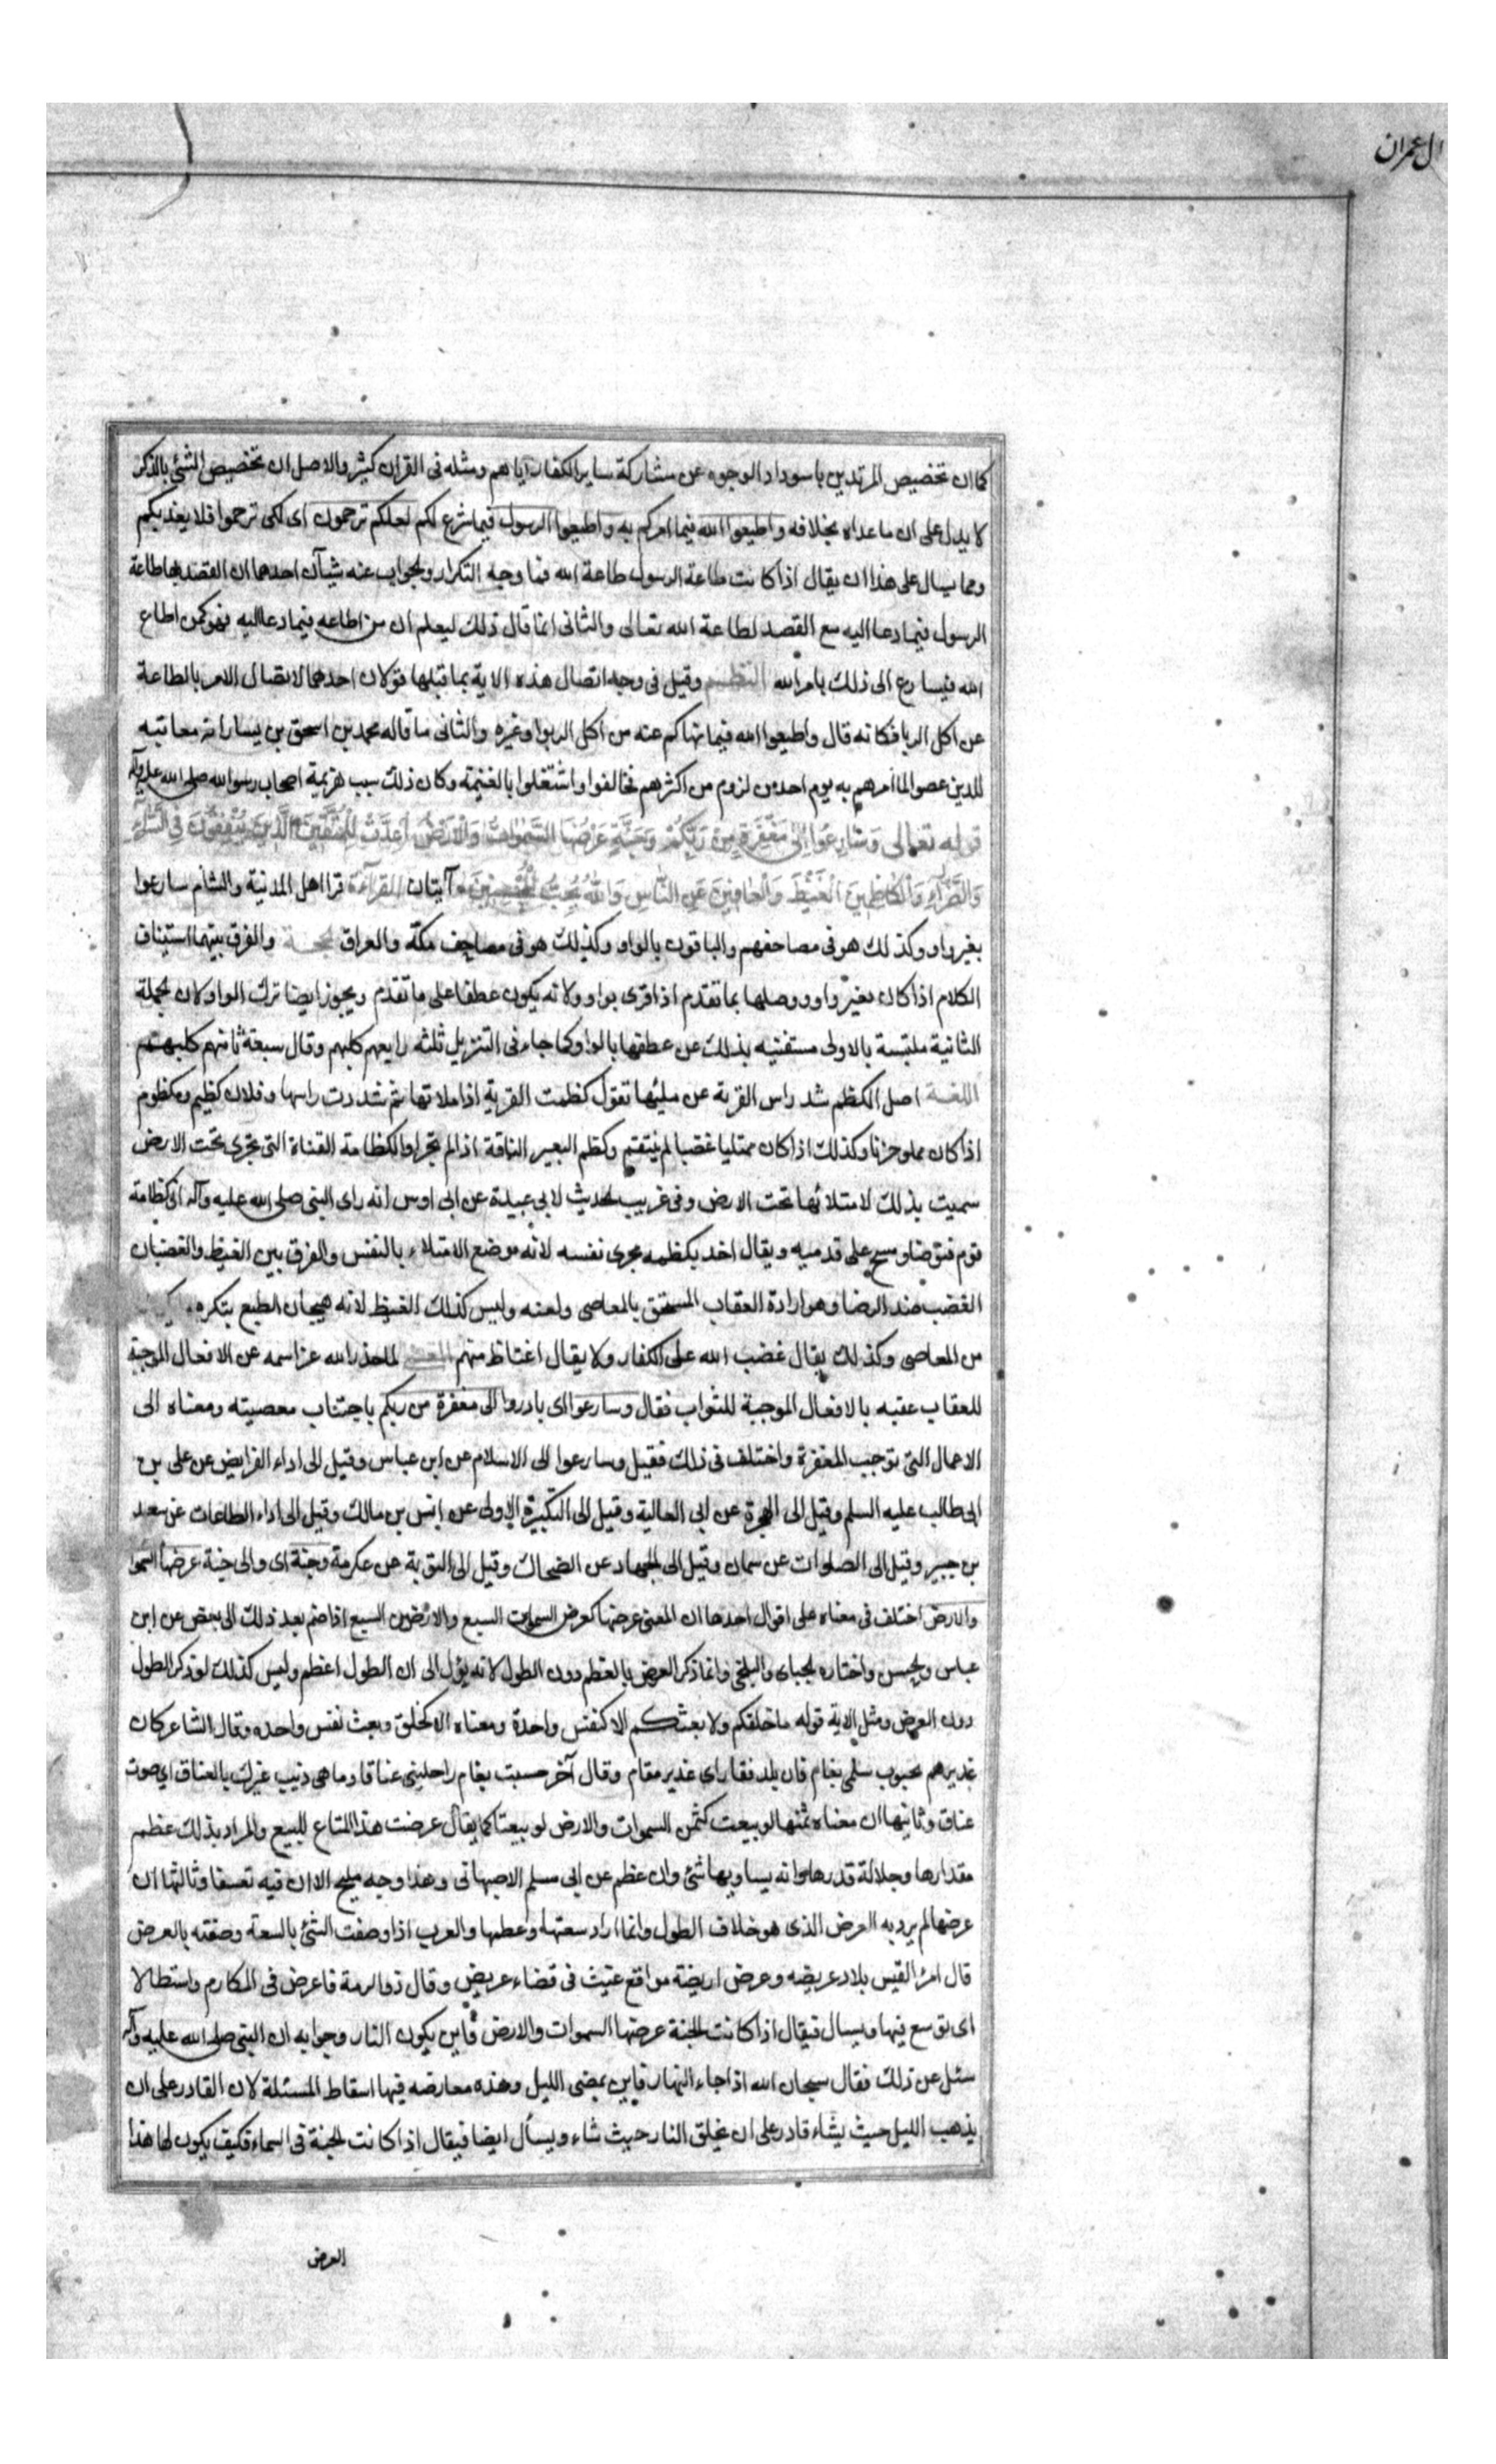 ال عمران
كما ان تخصيص المرتدين باسوداد الوجوه عن مشاركة ساير الكفار اياهم ومثله فى القران كثير والاصل ان تخصيص الشئ بالذكر
لا يدل على ان ماعداه بخلافه واطيعوا الله فيما امركم به واطيعوا الرسول فيما شرع لكم لعلكم ترحمون اى لكى ترحموا فلا يعذبكم
ومما يسال على هذا ان يقال اذا كانت طاعة الرسول طاعة الله فما وجه التكرار والجواب عنه شيآن احدهما ان القصد بها طاعة
الرسول فيما دعا اليه مع القصد لطاعة الله تعالى والثانى انما قال ذلك ليعلم ان من اطاعه فيما دعا اليه فهو كمن اطاع
الله فيسارع الى ذلك بامر الله النظم وقيل فى وجه اتصال هذه الاية بما قبلها قولان احدهما لاتصال الامر بالطاعة
عن اكل الربا فكانه قال واطيعوا الله فيما نهاكم عنه من اكل الربوا وغيره والثانى ما قاله محمد بن اسحق بن يسار انه معاتبه
للذين عصوا لما امرهم به يوم احد من لزوم من اكثرهم فخالفوا واشتغلوا بالغنيمة وكان ذلك سبب هزيمة اصحاب رسول الله صلى الله عليه وآله
قوله تعالى وَسَارِعُوا اِلٰى مَغْفِرَةٍ مِنْ رَبِّكُمْ وَجَنَّةٍ عَرْضُهَا السَّمٰوَاتُ وَالْاَرْضُ اُعِدَّتْ لِلْمُتَّقِينَ الَّذِينَ يُنْفِقُونَ فِى السَّرَّآءِ
وَالضَّرَّآءِ وَالْكَاظِمِينَ الْغَيْظَ وَالْعَافِينَ عَنِ النَّاسِ وَاللّٰهُ يُحِبُّ الْمُحْسِنِينَ آيتان القرآءة قرا اهل المدينة والشام سارعوا
بغير واو وكذلك هو فى مصاحفهم والباقون بالواو وكذلك هو فى مصاحف مكّة والعراق الحجة والفرق بينهما استيناف
الكلام اذا كان بغير واو ووصلها بما تقدم اذا قرى بواو ولانه يكون عطفا على ما تقدم ويجوز ايضا ترك الواو لان الجملة
الثانية ملتبسة بالاولى مستغنيه بذلك عن عطفها بالواو كما جاء فى التنزيل ثلثه رابعهم كلبهم وقال سبعة ثامنهم كلبهم
اللغة اصل الكظم شد راس القربة عن مليها تقول كظمت القربة اذا ملاتها ثم شددت راسها وفلان كظيم ومكظوم
اذا كان مملو حزنا وكذلك اذا كان ممتليا غضبا لم ينتقم وكظم البعير الناقة اذا لم تجر والكظامة القناة التى تجرى تحت الارض
سميت بذلك لامتلائها تحت الارض وفى غريب الحديث لابى عبيدة عن ابى اوس انه راى النبى صلى الله عليه وآله اتى كظامة
قوم فتوضا ومسح على قدميه ويقال اخذ بكظمه مجرى نفسه لانه موضع الامتلاء بالنفس والفرق بين الغيظ والغضب ان
الغضب ضد الرضا وهو ارادة العقاب المستحق بالمعاصى ولعنه وليس كذلك الغيظ لانه هيجان الطبع بتكره
من المعاصى وكذلك يقال غضب الله على الكفار ولا يقال اغتاظ منهم المعنى لما حذر الله عز اسمه عن الافعال الموجبة
للعقاب عقبه بالافعال الموجبة للثواب فقال وسارعوا اى بادروا الى مغفرة من ربكم باجتناب معصيته ومعناه الى
الاعمال التى توجب المغفرة واختلف فى ذلك فقيل وسارعوا الى الاسلام عن ابن عباس وقيل الى اداء الفرايض عن على بن
ابى طالب عليه السلم وقيل الى الهجرة عن ابى العالية وقيل الى التكبيرة الاولى عن انس بن مالك وقيل الى اداء الطاعات عن سعيد
بن جبير وقيل الى الصلوات عن يمان وقيل الى الجهاد عن الضحاك وقيل الى التوبة عن عكرمة وجنة اى والى جنة عرضها السموات
والارض اختلف فى معناه على اقوال احدها ان المعنى عرضها كعرض السموات السبع والارضين السبع اذا ضم بعد ذلك الى بعض عن ابن
عباس والحسن واختاره الجباى والبلخى وانما ذكر العرض بالعظم دون الطول لانه يؤل الى ان الطول اعظم وليس كذلك لو ذكر الطول
دون العرض ومثل الاية قوله ما خلقكم ولا بعثكم الا كنفس واحدة ومعناه الا كخلق وبعث نفس واحده وقال الشاعر كان
غديرهم بجنوب سلى نعام قان بلد فقار اى غدير مقام وقال آخر حسبت بغام راحلتى عناقا وما هى ويب غيرك بالعناق اى صوت
عناق وثانيها ان معناه ثمنها لو بيعت كثمن السموات والارض لو بيعتا كما يقال عرضت هذا المتاع للبيع والمراد بذلك عظم
مقدارها وجلالة قدرها وانه يساويها شئ وان عظم عن ابى مسلم الاصبهانى وهذا وجه مليح الا ان فيه تعسفا وثالثها ان
عرضها لم يرد به العرض الذى هو خلاف الطول وانما اراد سعتها وعظمها والعرب اذا وصفت الشئ بالسعة وصفته بالعرض
قال امرؤ القيس بلاد عريضه وعرض اريضة مواقع غيث فى فضاء عريض وقال ذو الرمة فاعرض فى المكارم واستطالا
اى توسع فيها ويسال فيقال اذا كانت الجنة عرضها السموات والارض فاين يكون النار وجوابه ان النبى صلى الله عليه وآله
سئل عن ذلك فقال سبحان الله اذا جاء النهار فاين يمضى الليل وهذه معارضه فيها اسقاط المسئلة لان القادر على ان
يذهب الليل حيث يشاء قادر على ان يخلق النار حيث شاء ويسأل ايضا فيقال اذا كانت الجنة فى السماء فكيف يكون لها هذا
العرض